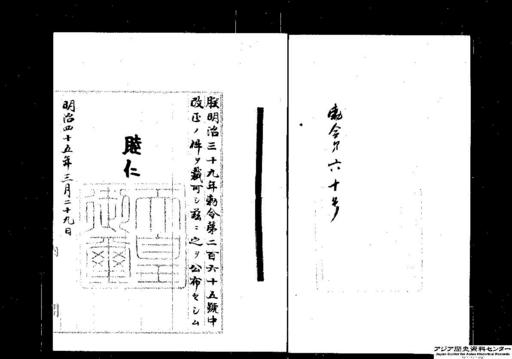 勅令第六十号
朕明治三十九年勅令第二百六十五號中
改正ノ件ヲ裁可シ茲ニ之ヲ公布セシム
睦仁
天皇
御璽
明治四十五年三月二十九日
アジア歴史資料センター
Japan Center for Asian Historical Records